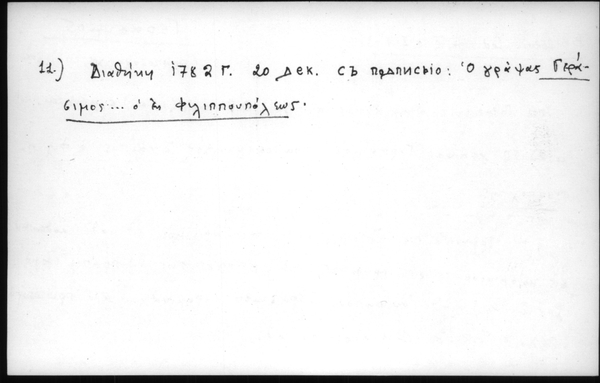 11.) Διαθήκη 1782 г. 20 дек. съ подписью: Ὁ γράψας Γερά-
σιμος... ὁ ἐκ Φιλιππουπόλεως.